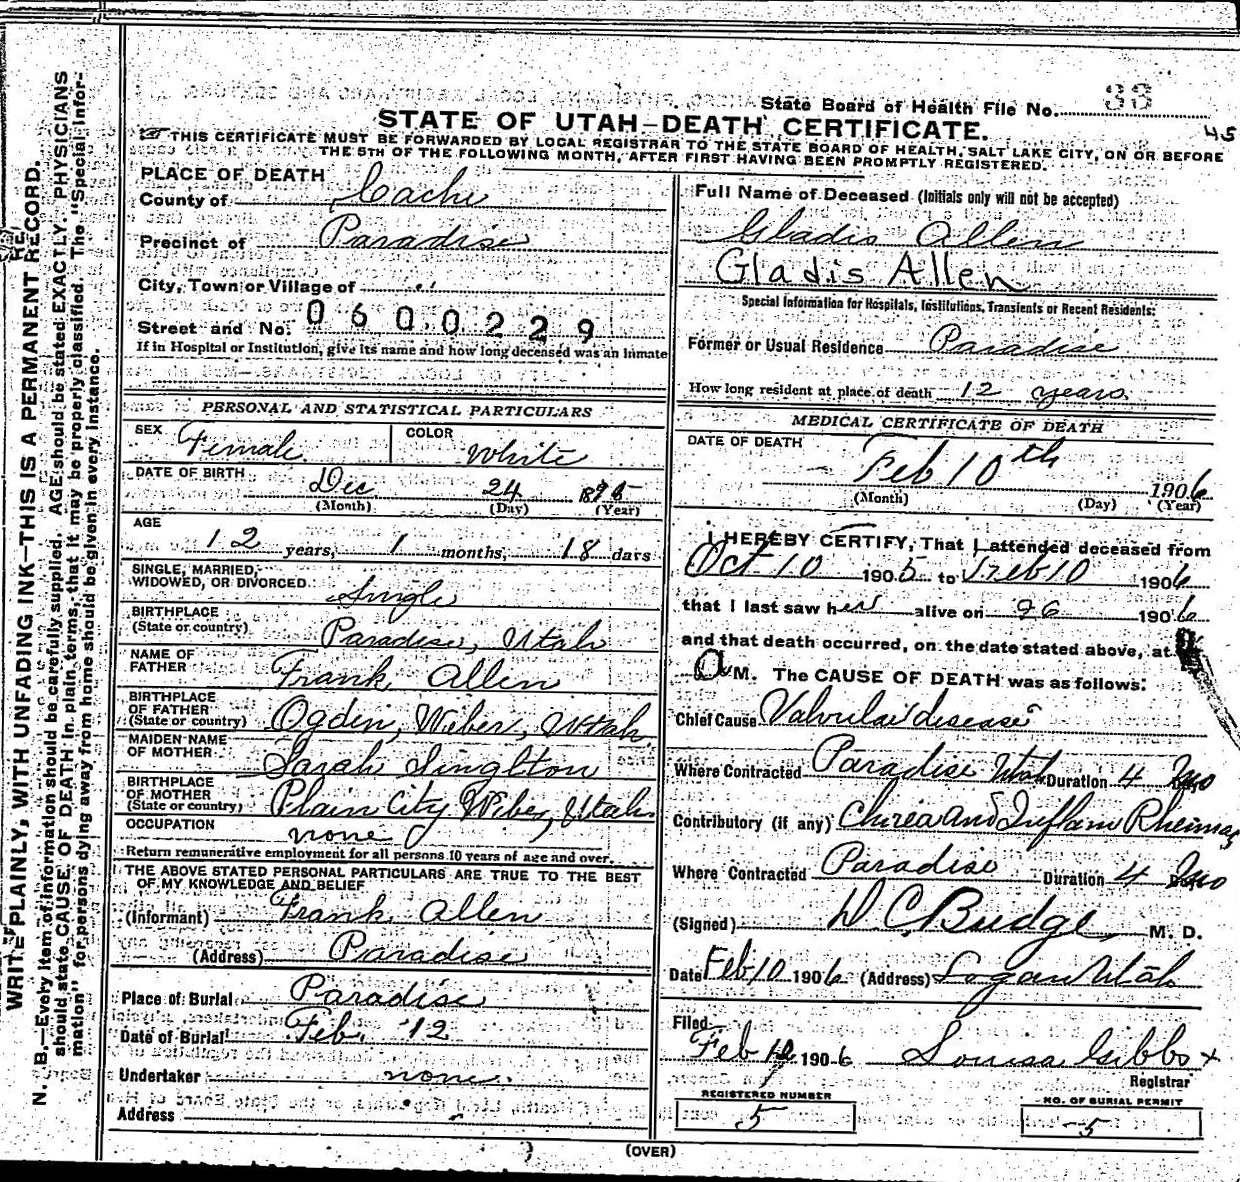 State Board of Health File No. 33
45
STATE OF UTAH—DEATH CERTIFICATE.
THIS CERTIFICATE MUST BE FORWARDED BY LOCAL REGISTRAR TO THE STATE BOARD OF HEALTH, SALT LAKE CITY, ON OR BEFORE
THE 5TH OF THE FOLLOWING MONTH, AFTER FIRST HAVING BEEN PROMPTLY REGISTERED.
WRITE PLAINLY, WITH UNFADING INK—THIS IS A PERMANENT RECORD.
N. B.—Every item of information should be carefully supplied. AGE should be stated EXACTLY. PHYSICIANS
should state CAUSE OF DEATH in plain terms, that it may be properly classified. The "Special Infor-
mation" for persons dying away from home should be given in every instance.
PLACE OF DEATH
County of Cache
Precinct of Paradise
City, Town or Village of "
Street and No. 0600229
If in Hospital or Institution, give its name and how long deceased was an inmate
PERSONAL AND STATISTICAL PARTICULARS
SEX Female COLOR White
DATE OF BIRTH Dec 24 189
(Month) (Day) (Year)
AGE 12 years, 1 months, 18 days
SINGLE, MARRIED,
WIDOWED, OR DIVORCED Single
BIRTHPLACE
(State or country) Paradise, Utah
NAME OF
FATHER Frank Allen
BIRTHPLACE
OF FATHER
(State or country) Ogden, Weber, Utah
MAIDEN NAME
OF MOTHER Sarah Singlton
BIRTHPLACE
OF MOTHER
(State or country) Plain City Weber, Utah
OCCUPATION none
Return remunerative employment for all persons 10 years of age and over.
THE ABOVE STATED PERSONAL PARTICULARS ARE TRUE TO THE BEST
OF MY KNOWLEDGE AND BELIEF
(Informant) Frank Allen
(Address) Paradise
Place of Burial Paradise
Date of Burial Feb. 12
Undertaker none
Address
Full Name of Deceased (Initials only will not be accepted)
Gladis Allen
Gladis Allen
Special Information for Hospitals, Institutions, Transients or Recent Residents:
Former or Usual Residence Paradise
How long resident at place of death 12 years
MEDICAL CERTIFICATE OF DEATH
DATE OF DEATH Feb 10th 1906
(Month) (Day) (Year)
I HEREBY CERTIFY, That I attended deceased from
Oct 10 1905 to Feb 10 1906
that I last saw her alive on 1906
and that death occurred, on the date stated above, at
a M. The CAUSE OF DEATH was as follows:
Chief Cause Valvular disease
Where Contracted Paradise Utah Duration 4 mo
Contributory (if any) Chirea and Inflam Rheima
Where Contracted Paradise Duration 4 mo
(Signed) D C Budge, M. D.
Date Feb 10 1906 (Address) Logan Utah
Filed
Feb 12 1906 Louisa Gibbs x
Registrar
REGISTERED NUMBER
5
NO. OF BURIAL PERMIT
5
(OVER)